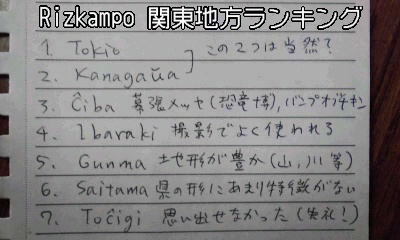 Rizkampo 関東地方ランキング
1. Tokio
2. Kanagaŭa
この2つは当然?
3. Ĉiba 幕張メッセ(恐竜博), バンプオブチキン
4. Ibaraki 撮影でよく使われる
5. Gunma 地形が豊か(山, 川等)
6. Saitama 県の形にあまり特徴がない
7. Toĉigi 思い出せなかった(失礼!)